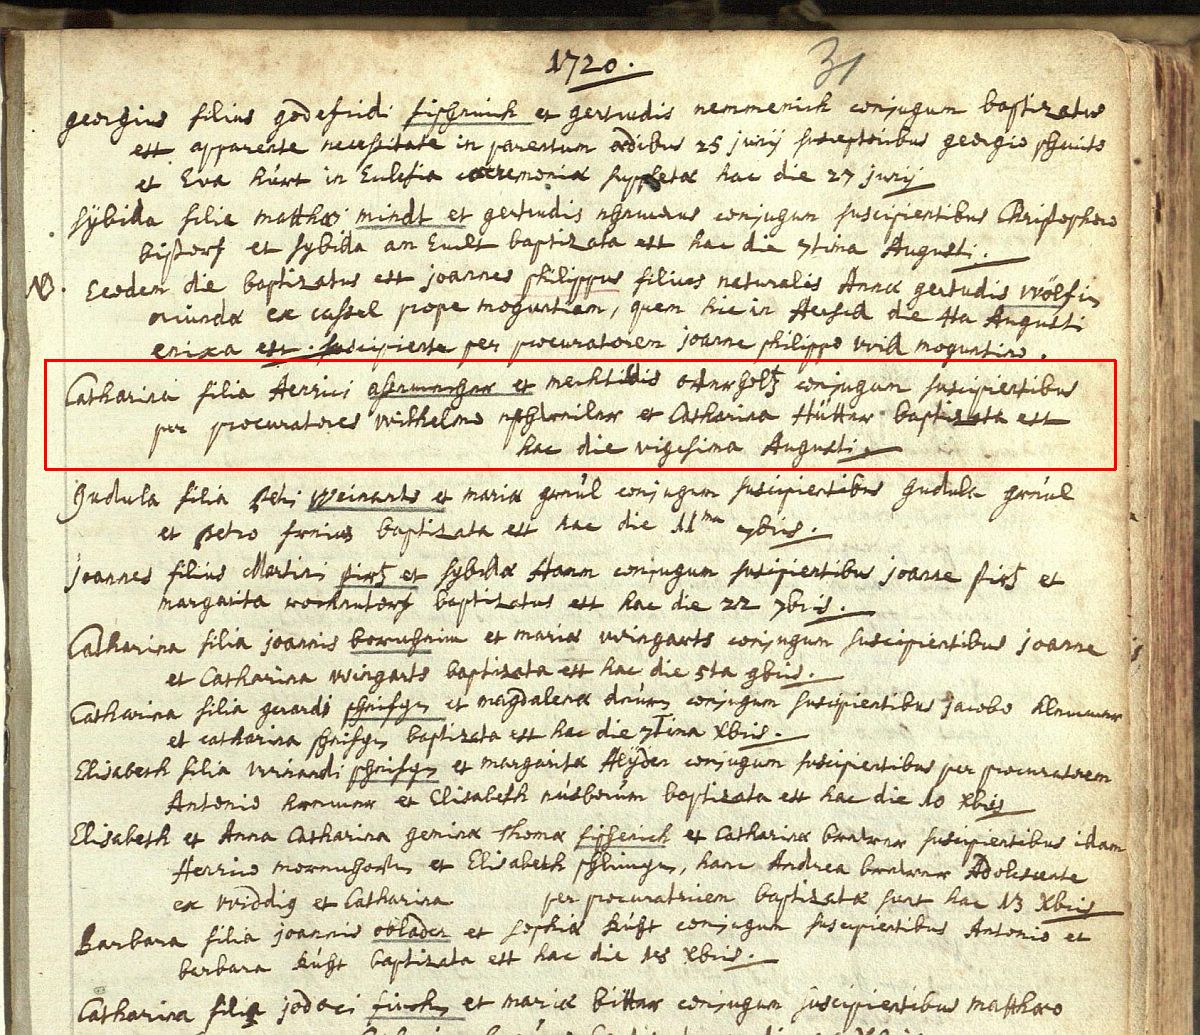 1720.
31
georgius filius godefridi fischenich et gertrudis nemmenich conjugum baptizatus
est apparente necessitate in parentum ædibus 25 junij susceptoribus georgio
et Eva Kürt in Ecclesia cæremoniæ suppletæ hac die 27 junij
sÿbilla filia matthæi mindt et gertrudis conjugum suscipientibus Christophoro
et sybilla baptizata est hac die 7tima Augusti.
NB. Eodem die baptizatus est joannes philippus filius naturalis Annæ gertrudis wölfin
oriunda ex cassel prope moguntiam, quem hic in Hersel die 4ta Augusti
enixa est. suscipiente per procuratorem joanne philippo moguntino.
Catharina filia Henrici et mechtildis conjugum suscipientibus
per procuratores wilhelmo et Catharina Hütter baptizata est
hac die vigesima Augusti.
Gudula filia Petri weinarts et mariæ greül conjugum suscipientibus Gudula greül
et Petro baptizata est hac die 11ma 7bris.
joannes filius Martini et sybillæ Hamm conjugum suscipientibus joanne et
margarita baptizatus est hac die 22 7bris.
Catharina filia joannis bornheim et mariæ wingarts conjugum suscipientibus joanne
et Catharina wingarts baptizata est hac die 5ta 9bris.
Catharina filia gerardi et magdalenæ conjugum suscipientibus jacobo
et catharina baptizata est hac die 7tima Xbris.
Elisabeth filia winandi et margaritæ Heÿder conjugum suscipientibus per procuratorem
Antonio et Elisabeth nüsbaum baptizata est hac die 10 Xbris
Elisabeth et Anna Catharina geminæ Thomæ fischenich et Catharinæ brewer suscipientibus
Henrico et Elisabeth, hanc Andrea brewer Adolescente
ex widdig et Catharina per procuratricem baptizatæ sunt hac 13 Xbris
Barbara filia joannis oblader et sophiæ conjugum suscipientibus Antonio et
barbara baptizata est hac die 18 Xbris.
Catharina filia jodoci et mariæ bitter conjugum suscipientibus matthæo